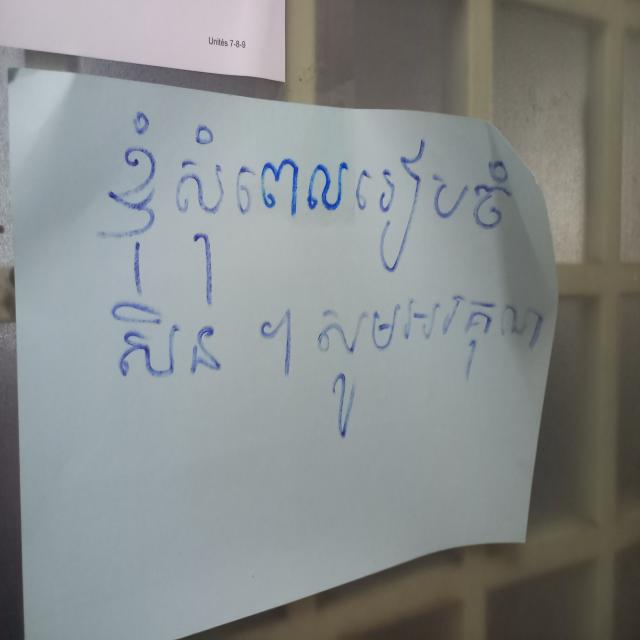 Unités 7-8-9
ខ្ញុំសុំពេលរៀបចំ
សិន ។ សូមអរគុណ